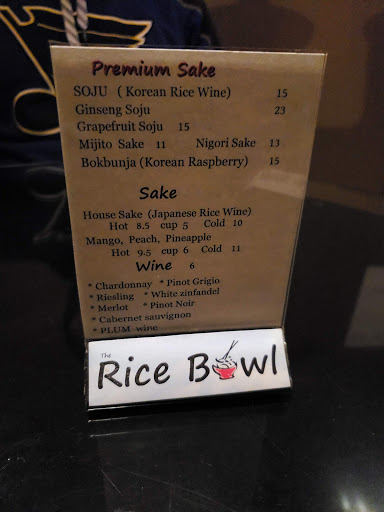 Premium Sake
SOJU ( Korean Rice Wine) 15
Ginseng Soju 23
Grapefruit Soju 15
Mijito Sake 11 Nigori Sake 13
Bokbunja (Korean Raspberry) 15
Sake
House Sake (Japanese Rice Wine)
Hot 8.5 cup 5 Cold 10
Mango, Peach, Pineapple
Hot 9.5 cup 6 Cold 11
Wine 6
* Chardonnay * Pinot Grigio
* Riesling * White zinfandel
* Merlot * Pinot Noir
* Cabernet sauvignon
* PLUM wine
The
Rice Bowl